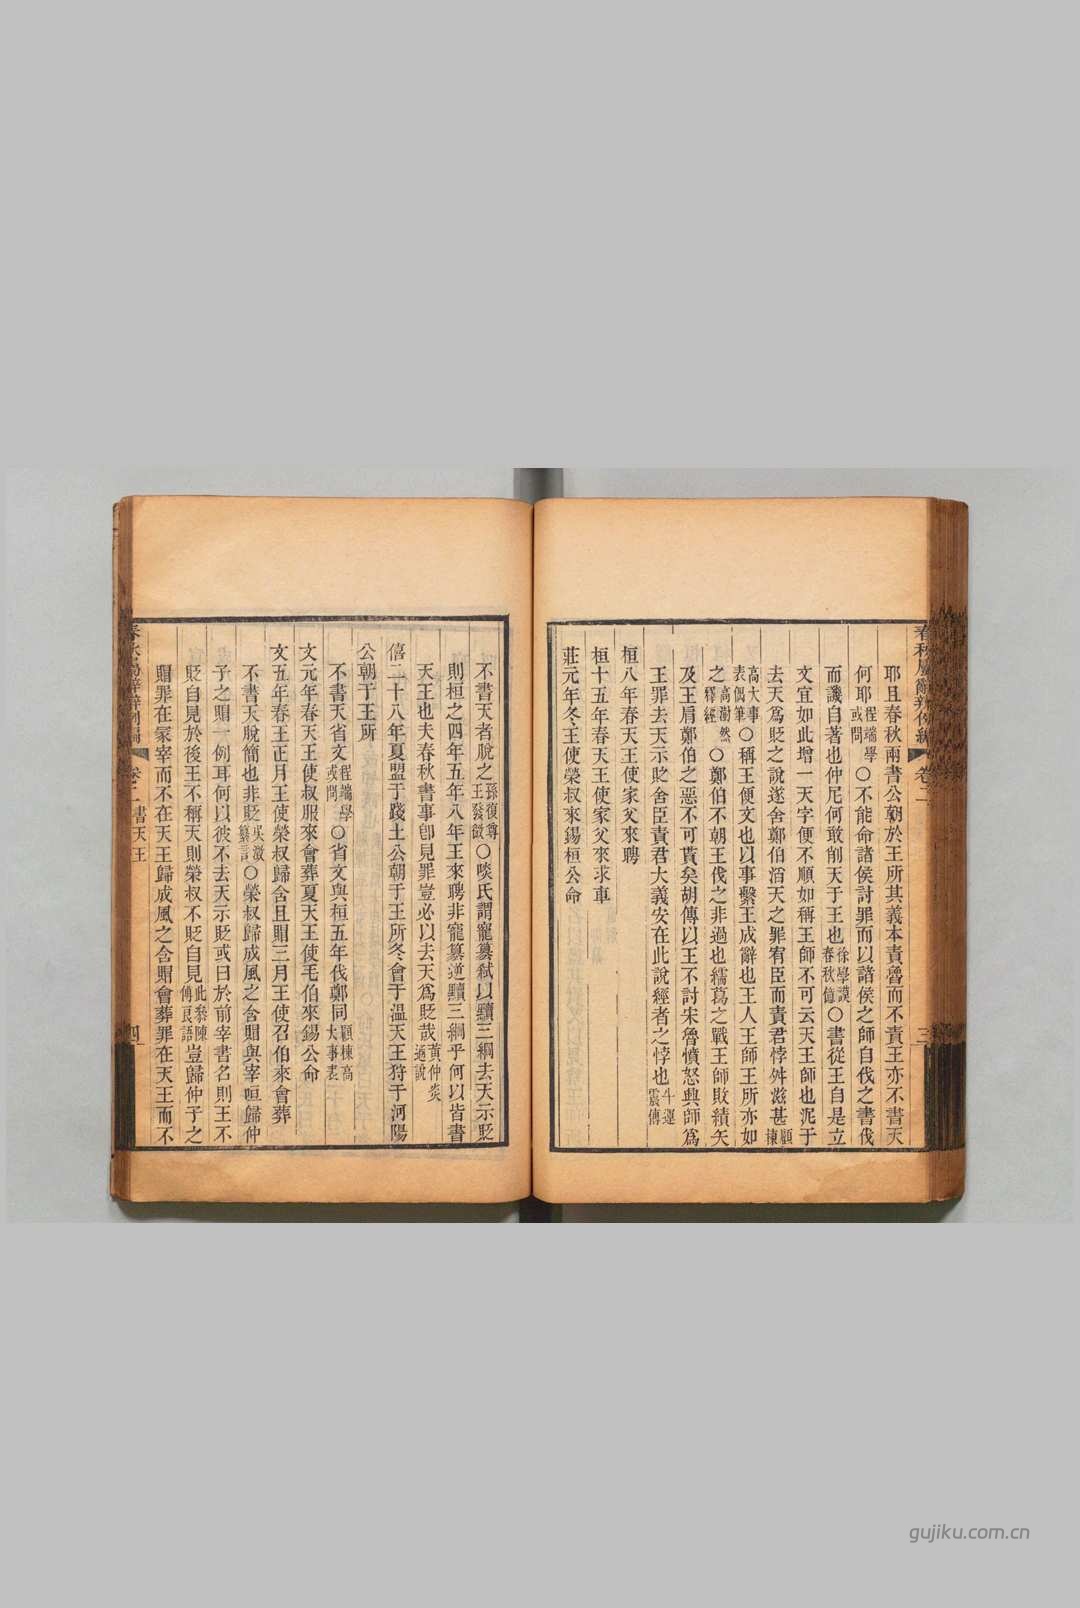 耶且春秋兩書公朝於王所其義本責魯而不責王亦不書天
何耶程端學或問〇不能命諸侯討罪而以諸侯之師自伐之書伐
而譏自著也仲尼何敢削天于王也徐學謨春秋億〇書從王自是立
文宜如此增一天字便不順如稱王師不可云天王師也泥于
去天爲貶之說遂舍鄭伯滔天之罪宥臣而責君悖舛滋甚顧棟
高大事表偶筆〇稱王便文也以事繫王成辭也王人王師王所亦如
之高澍然釋經〇鄭伯不朝王伐之非過也繻葛之戰王師敗績矢
及王肩鄭伯之惡不可貰矣胡傳以王不討宋魯憤怒興師爲
王罪去天示貶舍臣責君大義安在此說經者之悖也牛運震傳
桓八年春天王使家父來聘
桓十五年春天王使家父來求車
莊元年冬王使榮叔來錫桓公命
不書天者脫之孫復尊王發微〇啖氏謂寵簒弒以黷三綱去天示貶
則桓之四年五年八年王來聘非寵簒道黷三綱乎何以皆書
天王也夫春秋書事卽見罪豈必以去天爲貶哉黃仲炎通說
僖二十八年夏盟于踐土公朝于王所冬會于溫天王狩于河陽
公朝于王所
不書天省文程端學或問〇省文與桓五年伐鄭同顧棟高大事表
文元年春天王使叔服來會葬夏天王使毛伯來錫公命
文五年春王正月王使榮叔歸含且賵三月王使召伯來會葬
不書天脫簡也非貶吳澂纂言〇榮叔歸成風之含賵與宰咺歸仲
子之賵一例耳何以彼不去天示貶或曰於前宰書名則王不
貶自見於後王不稱天則榮叔不貶自見此黎陳傅良語豈歸仲子之
賵罪在冢宰而不在天王歸成風之含賵會葬罪在天王而不
春秋屬辭辨例編
卷二
三
春秋屬辭辨例編
卷二
書天王
四
gujiku.com.cn